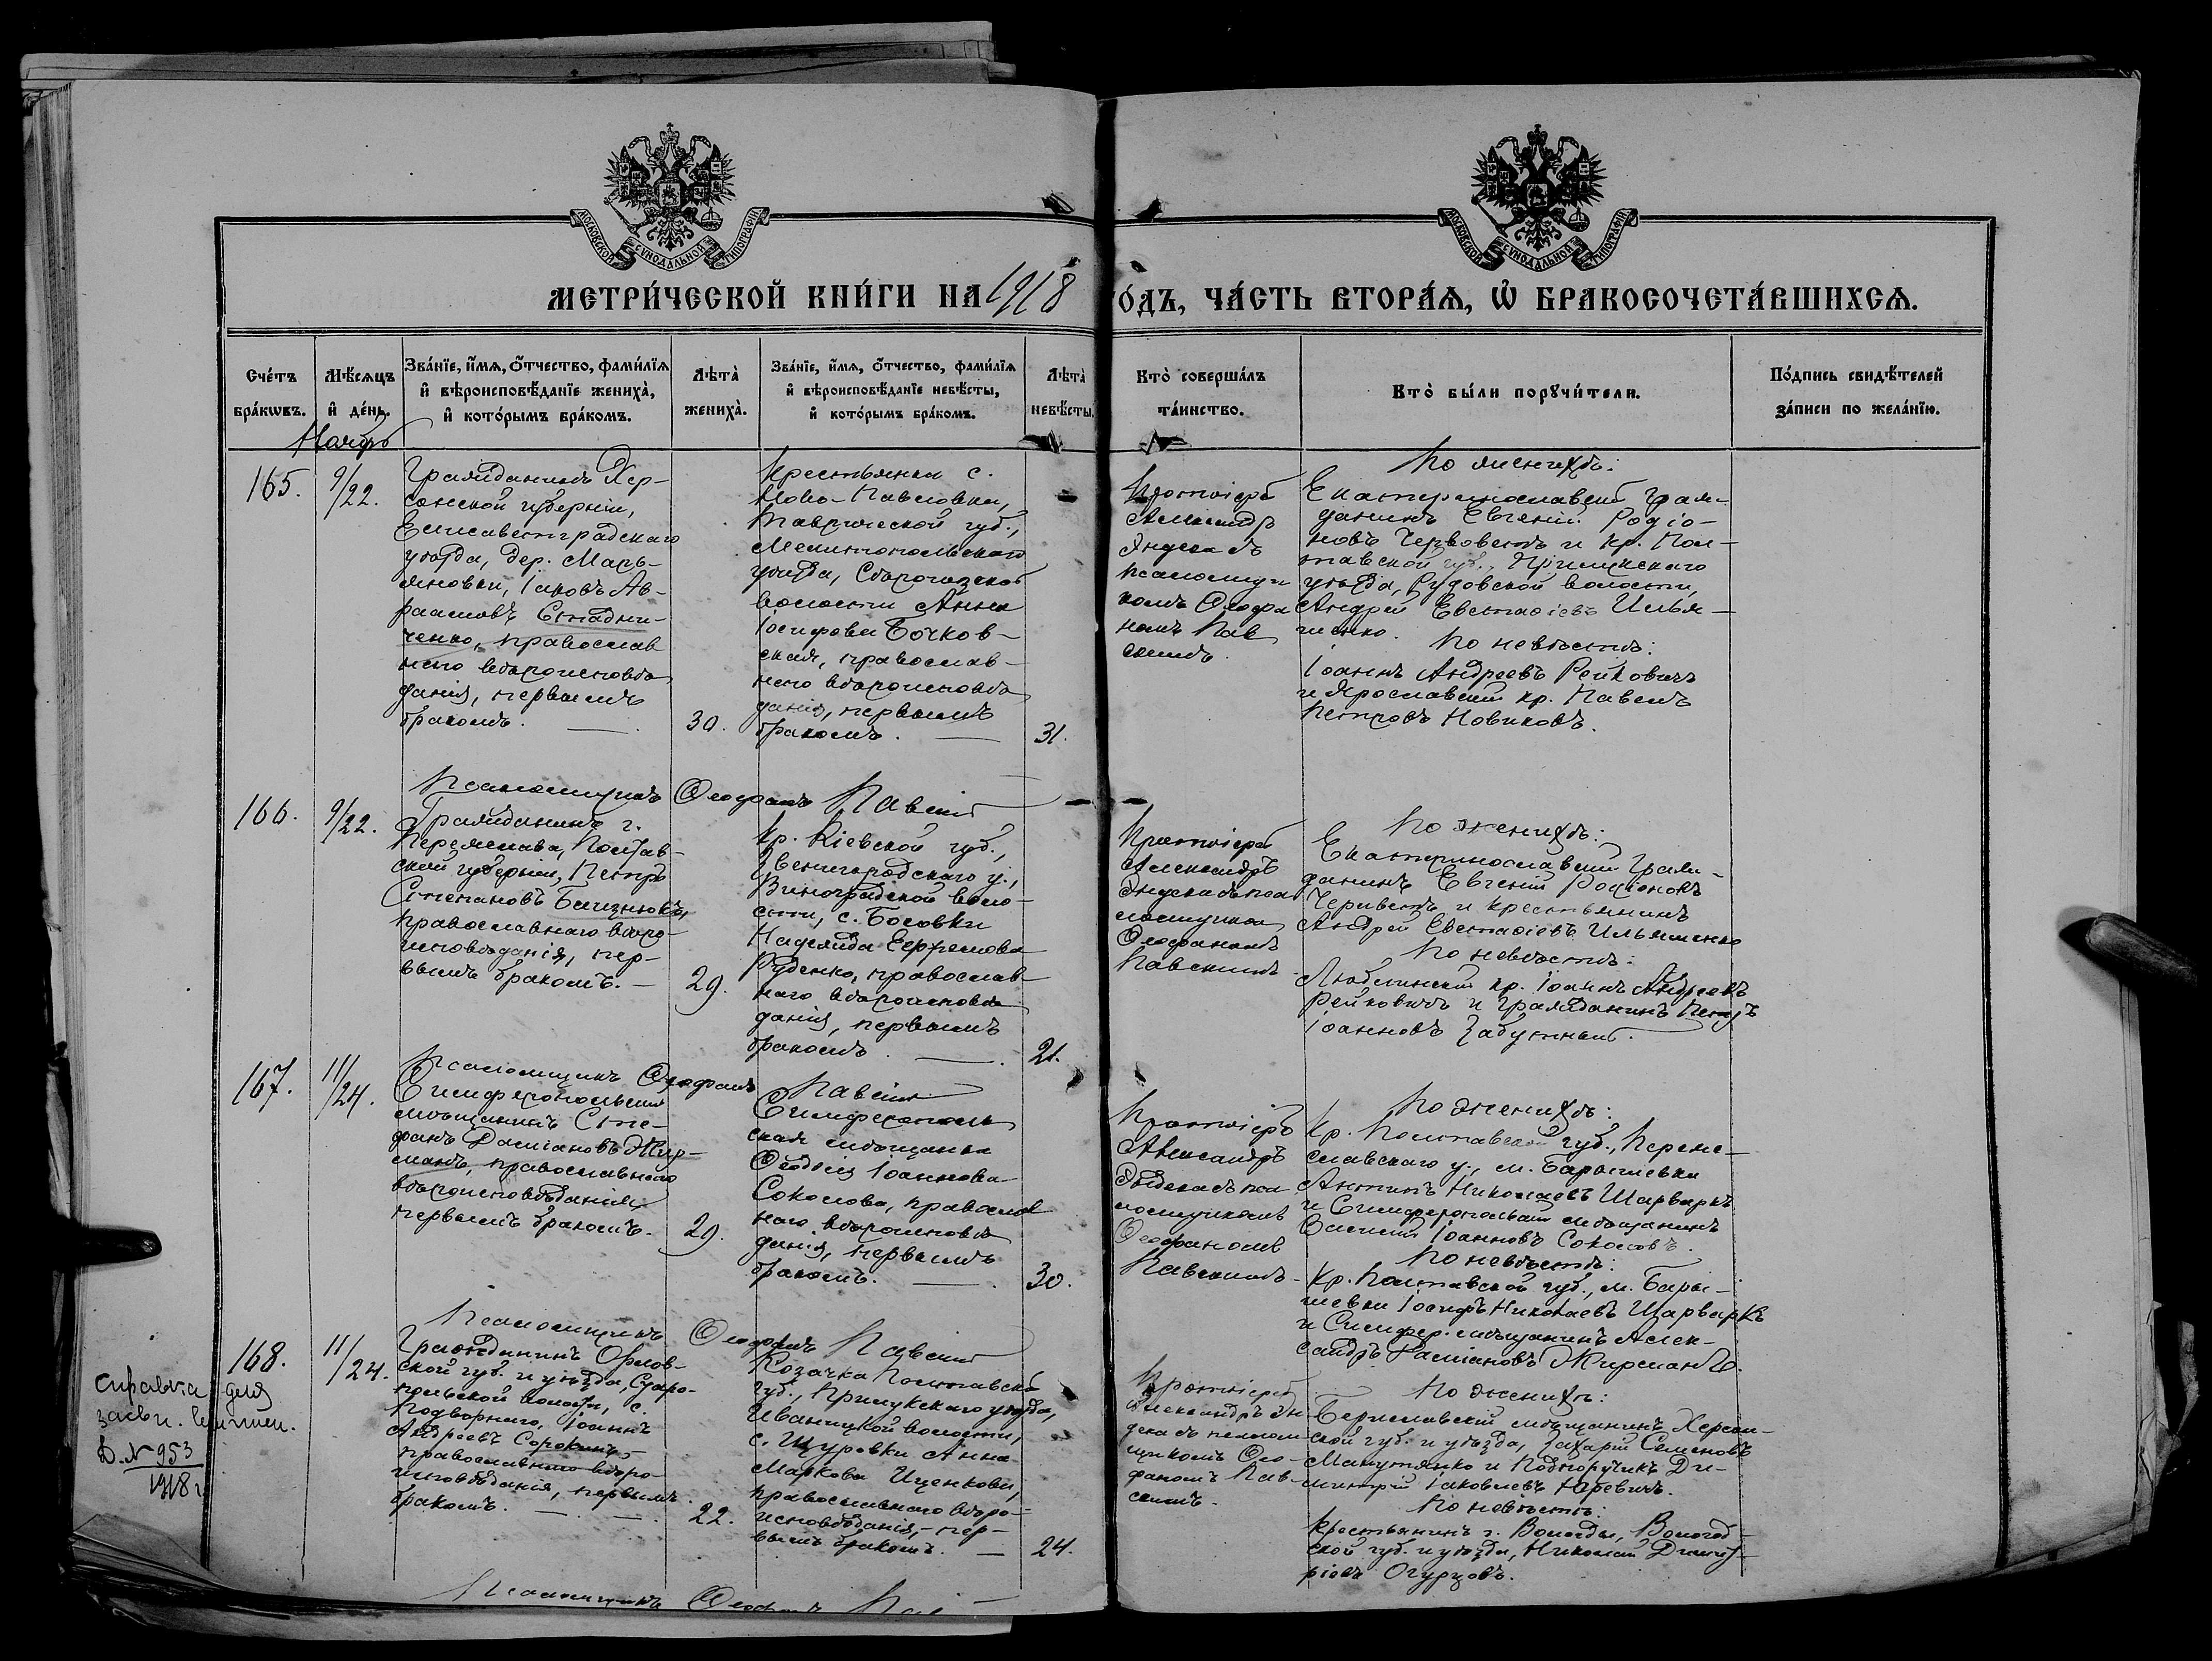 МОСКОВСКОЙ СѴНОДАЛЬНОЙ ТИПОГРАФІИ
МОСКОВСКОЙ СѴНОДАЛЬНОЙ ТИПОГРАФІИ
МЕТРИ́ЧЕСКОЙ КНИ́ГИ НА 1918 ГО́ДЪ, ЧА́СТЬ ВТОРА́Я, Ѡ҆ БРАКОСОЧЕТА́ВШИХСЯ.
Сче́тъ бра́кѡвъ.
Мѣ́сяцъ и҆ де́нь.
Зва́нїе, и҆́мя, ѻ҆́тчество, фами́лїя
и҆ вѣроисповѣ́данїе жениха̀,
и҆ кото́рымъ бра́комъ.
Лѣта̀
жениха̀.
Зва́нїе, и҆́мя, ѻ҆́тчество, фами́лїя
и҆ вѣроисповѣ́данїе невѣ́сты,
и҆ кото́рымъ бра́комъ.
Лѣта̀
невѣ́сты.
Кто̀ соверша́лъ
та́инство.
Кто̀ бы́ли порꙋчи́тели.
По́дпись свидѣ́телей
за́писи по жела́нїю.
Ноябрь
165.
9/22.
Гражданинъ Хер-
сонской губерніи,
Елисаветградскаго
уѣзда, дер. Марь-
яновки, Іаковъ Ав-
раамовъ Стадни-
ченко, православ
наго вѣроисповѣ
данія, первымъ
бракомъ.
30.
Крестьянка с.
Ново-Павловки,
Таврической губ.,
Мелитопольскаго
уѣзда,
волости Анна
Іосифова Бочков-
ская, православ-
наго вѣроисповѣ
данія, первымъ
бракомъ.
31.
Протоіерей
Александръ
Эндека съ
псаломщи
комъ Ѳеофа
номъ Пав
скимъ.
По женихѣ:
Екатеринославскій граж-
данинъ Евгеній Родіо-
новъ Червовецъ и кр. Пол-
тавской губ., Прилукскаго
уѣзда, Рудовской волости,
Андрей Евстафіевъ Илья-
шенко.
По невѣстѣ:
Іоаннъ Андреевъ Рейковичъ
и Ярославскій кр. Павелъ
Петровъ Новиковъ.
Псаломщикъ Ѳеофанъ Павскій
166.
9/22.
Гражданинъ г.
Переяслава, Полтав-
ской губерніи, Петръ
Степановъ Близнюкъ,
православнаго вѣро-
исповѣданія, пер-
вымъ бракомъ.
29.
Кр. Кіевской губ.,
Звенигородскаго у.,
Виноградской воло-
сти, с. Босовки
Надежда Ефремова
Руденко, православ-
наго вѣроисповѣ
данія, первымъ
бракомъ.
21.
Протоіерей
Александръ
Эндека съ пса
ломщикомъ
Ѳеофаномъ
Павскимъ.
По женихѣ:
Екатеринославскій граж-
данинъ Евгеній Родіоновъ
и крестьянинъ
Андрей Евстафіевъ Ильяшенко
По невѣстѣ:
Люблинскій кр. Іоаннъ Андреевъ
Рейковичъ и гражданинъ Петръ
Іоанновъ Забутный.
Псаломщикъ Ѳеофанъ Павскій
167.
11/24.
Симферопольскій
мѣщанинъ Сте-
фанъ Даміановъ Жир-
манъ, православнаго
вѣроисповѣданія
первымъ бракомъ.
29.
Симферополь
ская мѣщанка
Ѳеодосія Іоаннова
Соколова, православ
наго вѣроисповѣ
данія, первымъ
бракомъ.
30.
Протоіерей
Александръ
Эндека съ пса
ломщикомъ
Ѳеофаномъ
Павскимъ.
По женихѣ:
Кр. Полтавской губ., Перея-
славскаго у., м. Барышевки
Антипъ Николаевъ Шарваркъ
и Симферопольскій мѣщанинъ
Василій Іоанновъ Соколовъ.
По невѣстѣ:
Кр. Полтавской губ., м. Бары-
шевки Іосифъ Николаевъ Шарваркъ
и Симфер. мѣщанинъ Алек-
сандръ Даміановъ Жирманъ.
Псаломщикъ Ѳеофанъ Павскій
168.
11/24.
справка для
Д. № 953
1918 г.
Гражданинъ Орлов-
ской губ. и уѣзда,
волости, с.
Подворнаго, Іоаннъ
Андреевъ Сорокинъ,
православнаго вѣро-
исповѣданія, первымъ
бракомъ.
22.
Козачка Полтавской
губ., Прилукскаго уѣзда,
Иваницкой волости,
с. Щуровки Анна
Маркова Ищенкова,
православнаго вѣро-
исповѣданія, пер-
вымъ бракомъ.
24.
Протоіерей
Александръ Эн
дека съ псалом
щикомъ Ѳео-
фаномъ Пав-
скимъ.
По женихѣ:
Бериславскій мѣщанинъ Херсон-
ской губ. и уѣзда, Захарій Семеновъ
и Подпоручикъ Ди-
митрій Іаковлевъ
По невѣстѣ:
Крестьянинъ г. Вологды, Вологод-
ской губ. и уѣзда, Николай Димит-
ріевъ Огурцовъ.
Псаломщикъ Ѳеофанъ